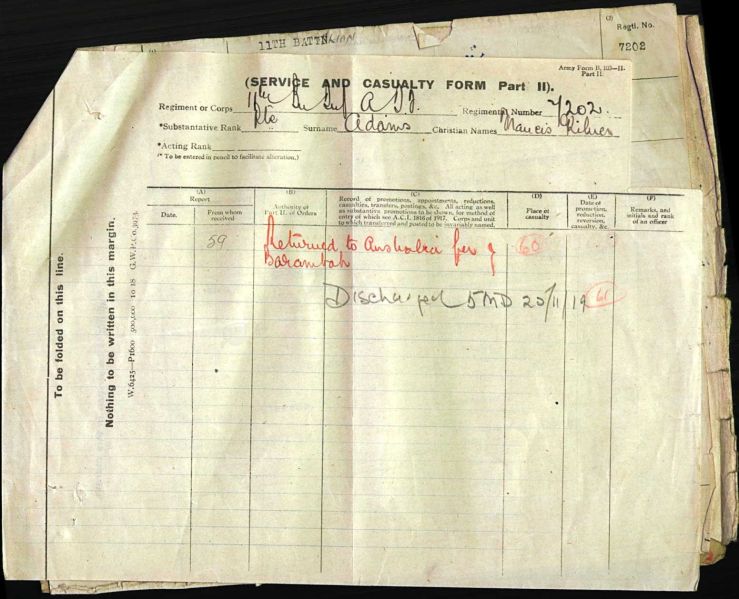 11TH BATTALION
(J)
Regtl. No.
7202
Army Form B. 103—II.
Part II.
(SERVICE AND CASUALTY FORM Part II).
Regiment or Corps 11th Regimental Number 7202
*Substantive Rank Pte Surname Adams Christian Names Francis
*Acting Rank
(* To be entered in pencil to facilitate alteration.)
(A)
Report
Date.
From whom received
(B)
Authority of Part II. of Orders
(C)
Record of promotions, appointments, reductions, casualties, transfers, postings, &c. All acting as well as substantive promotions to be shown, for method of entry of which see A.C.I. 1816 of 1917. Corps and unit to which transferred and posted to be invariably named.
(D)
Place of casualty
(E)
Date of promotion, reduction, reversion, casualty, &c.
(F)
Remarks, and initials and rank of an officer
59 Returned to Australia per 60
Barambah
Discharged 5MD 20/11/19 61
To be folded on this line.
Nothing to be written in this margin.
W.6425—P1600 500,000 10 18 G.W.P.Co.